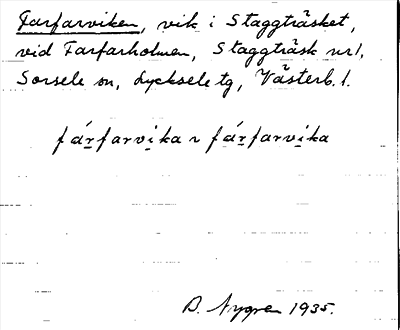 Farfarviken, vik i Staggträsket,
vid Farfarholmen, Staggträsk nr 1,
Sorsele sn, Lycksele tg, Västerb. l.
fár̲farvi̲ka ~ fá̲r̲farvi̲ka
B. Nygren 1935.